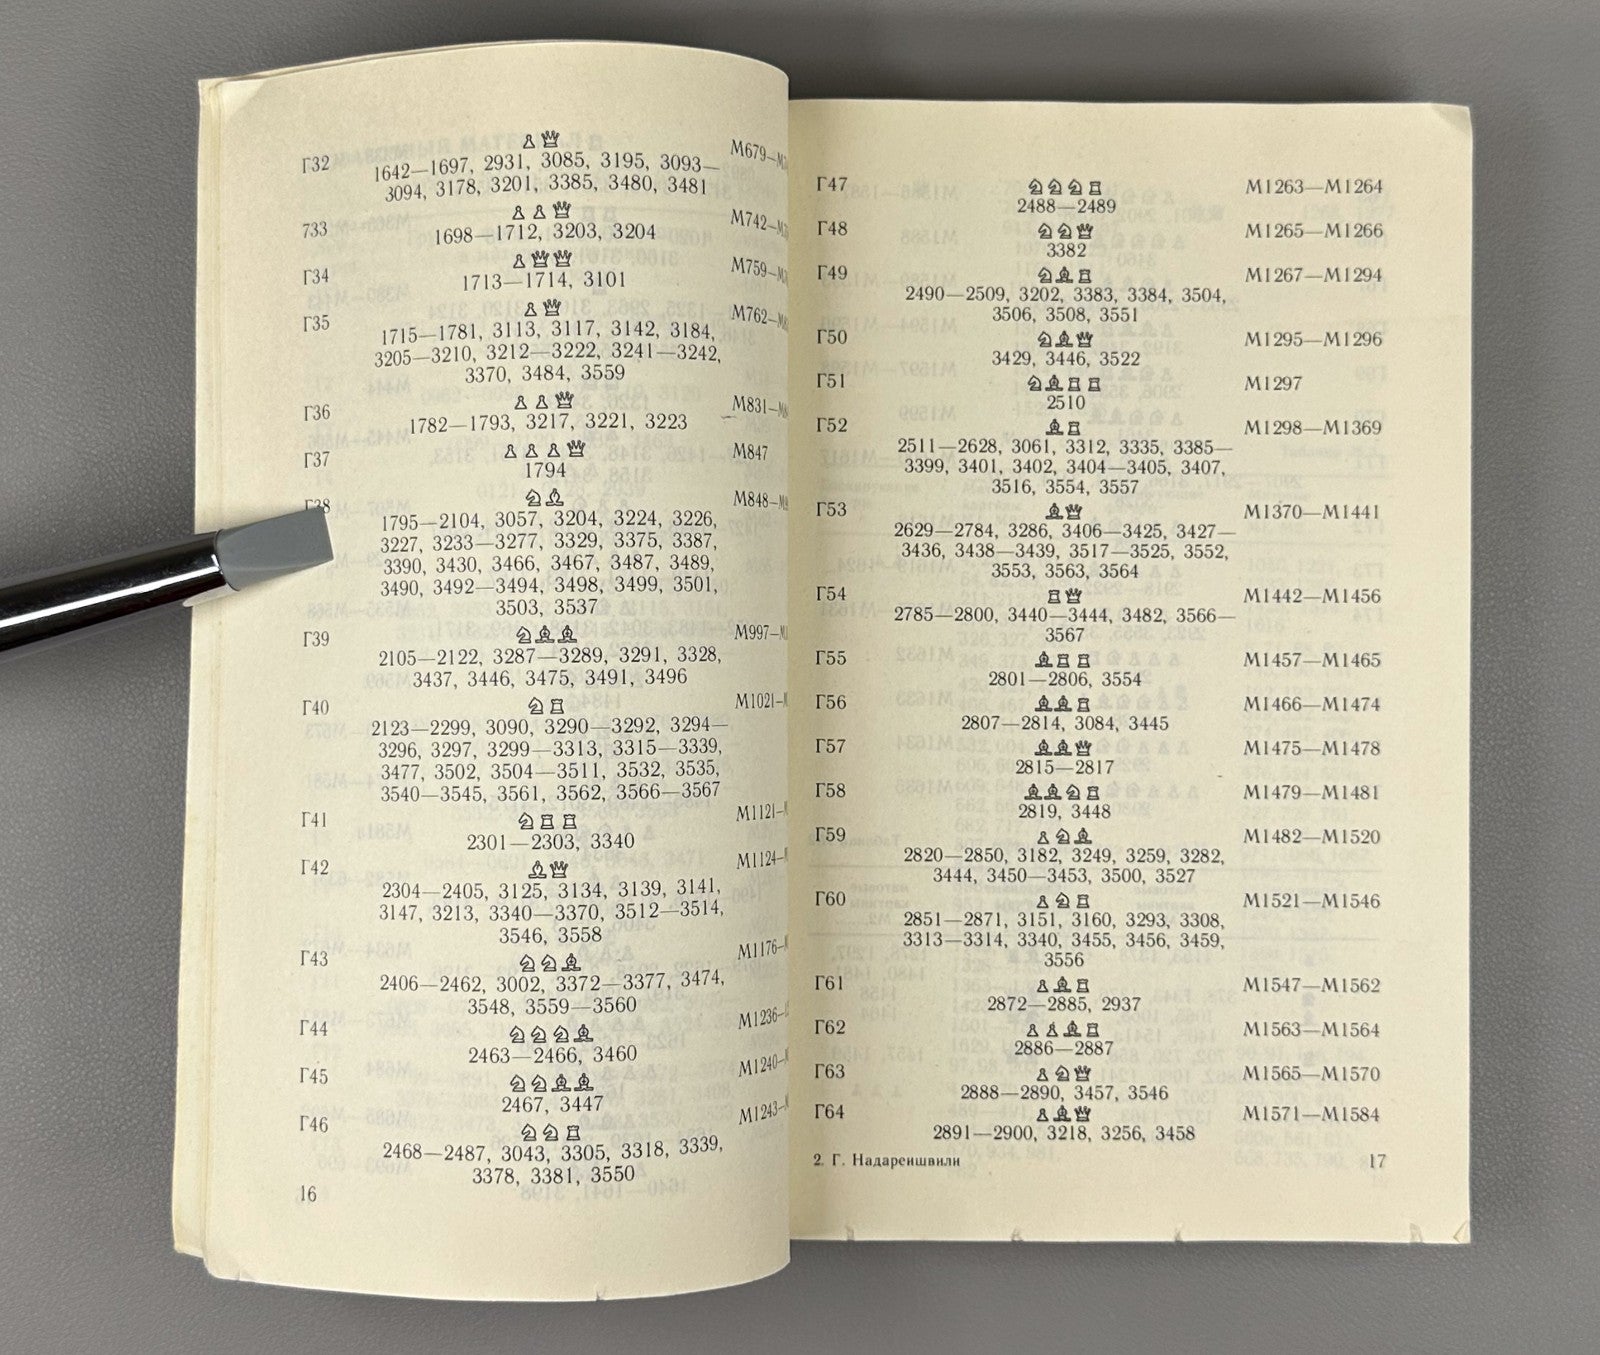 Г32
1642—1697, 2931, 3085, 3195, 3093—
3094, 3178, 3201, 3385, 3480, 3481
М679—
733
1698—1712, 3203, 3204
М742—
Г34
1713—1714, 3101
М759—
Г35
1715—1781, 3113, 3117, 3142, 3184,
3205—3210, 3212—3222, 3241—3242,
3370, 3484, 3559
М762—
Г36
1782—1793, 3217, 3221, 3223
М831—
Г37
1794
М847
Г38
1795—2104, 3057, 3204, 3224, 3226,
3227, 3233—3277, 3329, 3375, 3387,
3390, 3430, 3466, 3467, 3487, 3489,
3490, 3492—3494, 3498, 3499, 3501,
3503, 3537
М848—
Г39
2105—2122, 3287—3289, 3291, 3328,
3437, 3446, 3475, 3491, 3496
М997—
Г40
2123—2299, 3090, 3290—3292, 3294—
3296, 3297, 3299—3313, 3315—3339,
3477, 3502, 3504—3511, 3532, 3535,
3540—3545, 3561, 3562, 3566—3567
М1021—
Г41
2301—2303, 3340
М1121—
Г42
2304—2405, 3125, 3134, 3139, 3141,
3147, 3213, 3340—3370, 3512—3514,
3546, 3558
М1124—
Г43
2406—2462, 3002, 3372—3377, 3474,
3548, 3559—3560
М1176—
Г44
2463—2466, 3460
М1236—
Г45
2467, 3447
М1240—
Г46
2468—2487, 3043, 3305, 3318, 3339,
3378, 3381, 3550
М1243—
16
Г47
2488—2489
М1263—М1264
Г48
3382
М1265—М1266
Г49
2490—2509, 3202, 3383, 3384, 3504,
3506, 3508, 3551
М1267—М1294
Г50
3429, 3446, 3522
М1295—М1296
Г51
2510
М1297
Г52
2511—2628, 3061, 3312, 3335, 3385—
3399, 3401, 3402, 3404—3405, 3407,
3516, 3554, 3557
М1298—М1369
Г53
2629—2784, 3286, 3406—3425, 3427—
3436, 3438—3439, 3517—3525, 3552,
3553, 3563, 3564
М1370—М1441
Г54
2785—2800, 3440—3444, 3482, 3566—
3567
М1442—М1456
Г55
2801—2806, 3554
М1457—М1465
Г56
2807—2814, 3084, 3445
М1466—М1474
Г57
2815—2817
М1475—М1478
Г58
2819, 3448
М1479—М1481
Г59
2820—2850, 3182, 3249, 3259, 3282,
3444, 3450—3453, 3500, 3527
М1482—М1520
Г60
2851—2871, 3151, 3160, 3293, 3308,
3313—3314, 3340, 3455, 3456, 3459,
3556
М1521—М1546
Г61
2872—2885, 2937
М1547—М1562
Г62
2886—2887
М1563—М1564
Г63
2888—2890, 3457, 3546
М1565—М1570
Г64
2891—2900, 3218, 3256, 3458
М1571—М1584
2. Г. Надареишвили
17